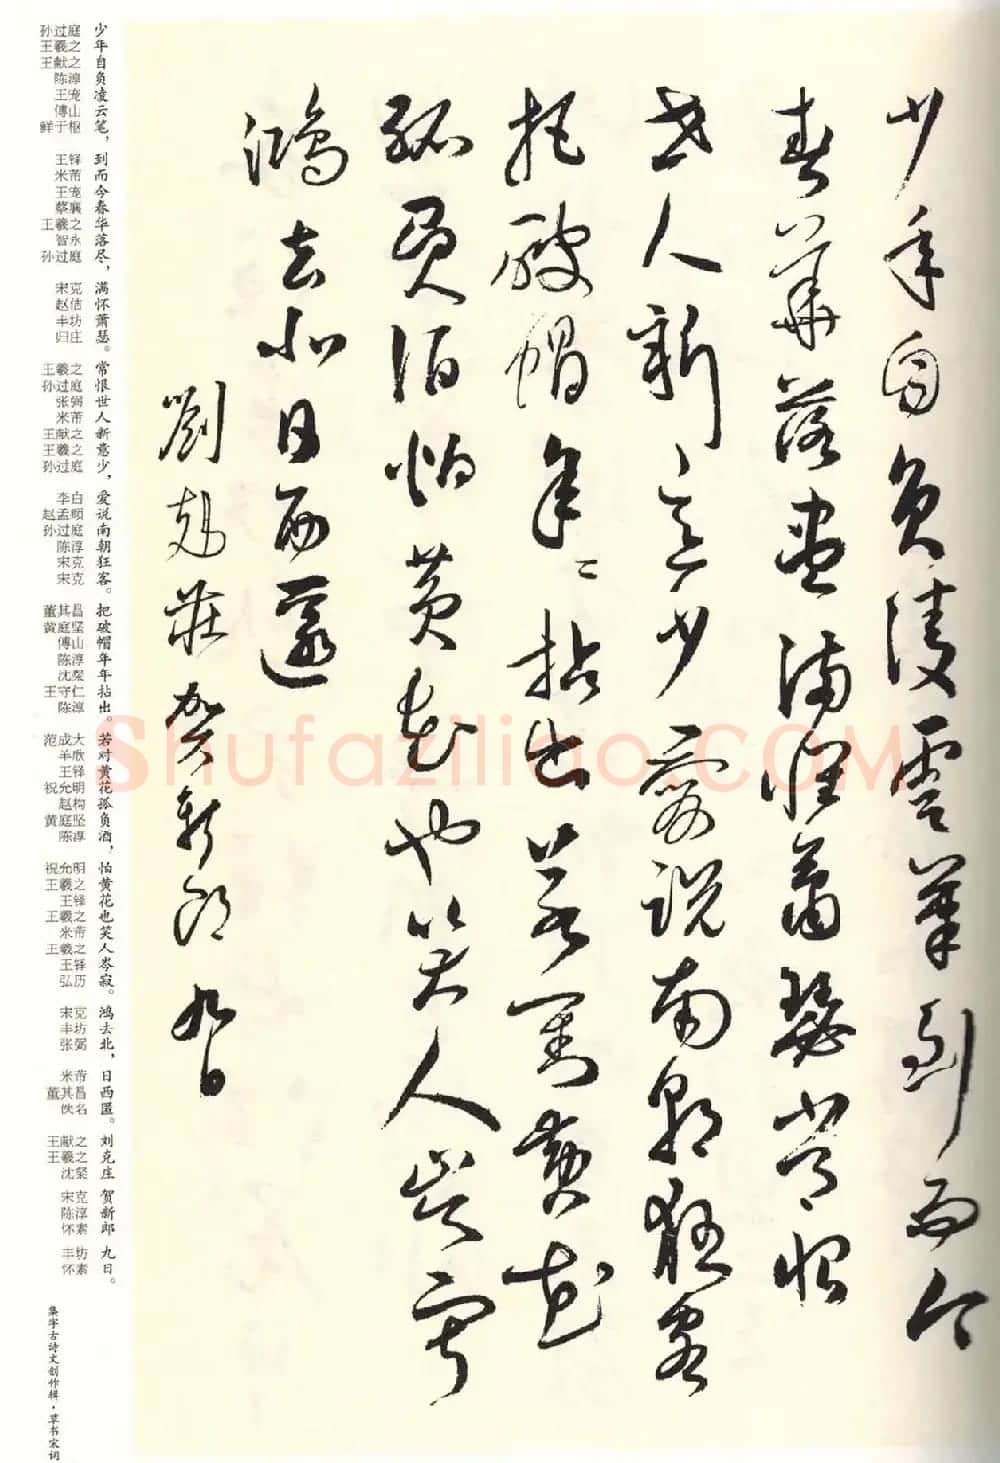 少年自負凌雲筆到而今
春華落盡滿懷蕭瑟常恨
世人新意少愛說南朝狂客
把破帽年々拈出若對黃花
孤負酒怕黃花也笑人岑寂
鴻去北日西匿
劉克莊賀新郎九日
孙过庭 少
王羲之 年
王献之 自
陈淳 负
王宠 凌
傅山 云
鲜于枢 笔，
王铎 到
米芾 而
王宠 今
蔡襄 春
王羲之 华
智永 落
孙过庭 尽，
宋克 满
赵佶 怀
丰坊 萧
归庄 瑟。
王羲之 常
孙过庭 恨
张弼 世
米芾 人
王献之 新
王羲之 意
孙过庭 少，
李白 爱
赵孟頫 说
孙过庭 南
陈淳 朝
宋克 狂
宋克 客。
董其昌 把
黄庭坚 破
傅山 帽
陈淳 年
沈粲 年
王守仁 拈
陈淳 出。
范成大 若
羊欣 对
王铎 黄
祝允明 花
赵构 孤
黄庭坚 负
陈淳 酒，
祝允明 怕
王羲之 黄
王铎 花
王羲之 也
米芾 笑
王羲之 人
王铎 岑
弘历 寂。
宋克 鸿
丰坊 去
张弼 北，
米芾 日
董其昌 西
佚名 匿。
王献之 刘
王羲之 克
沈粲 庄
宋克 贺
陈淳 新
怀素 郎
丰坊 九
怀素 日。
集字古诗文创作辑·草书宋词
Shufaziliao.COM